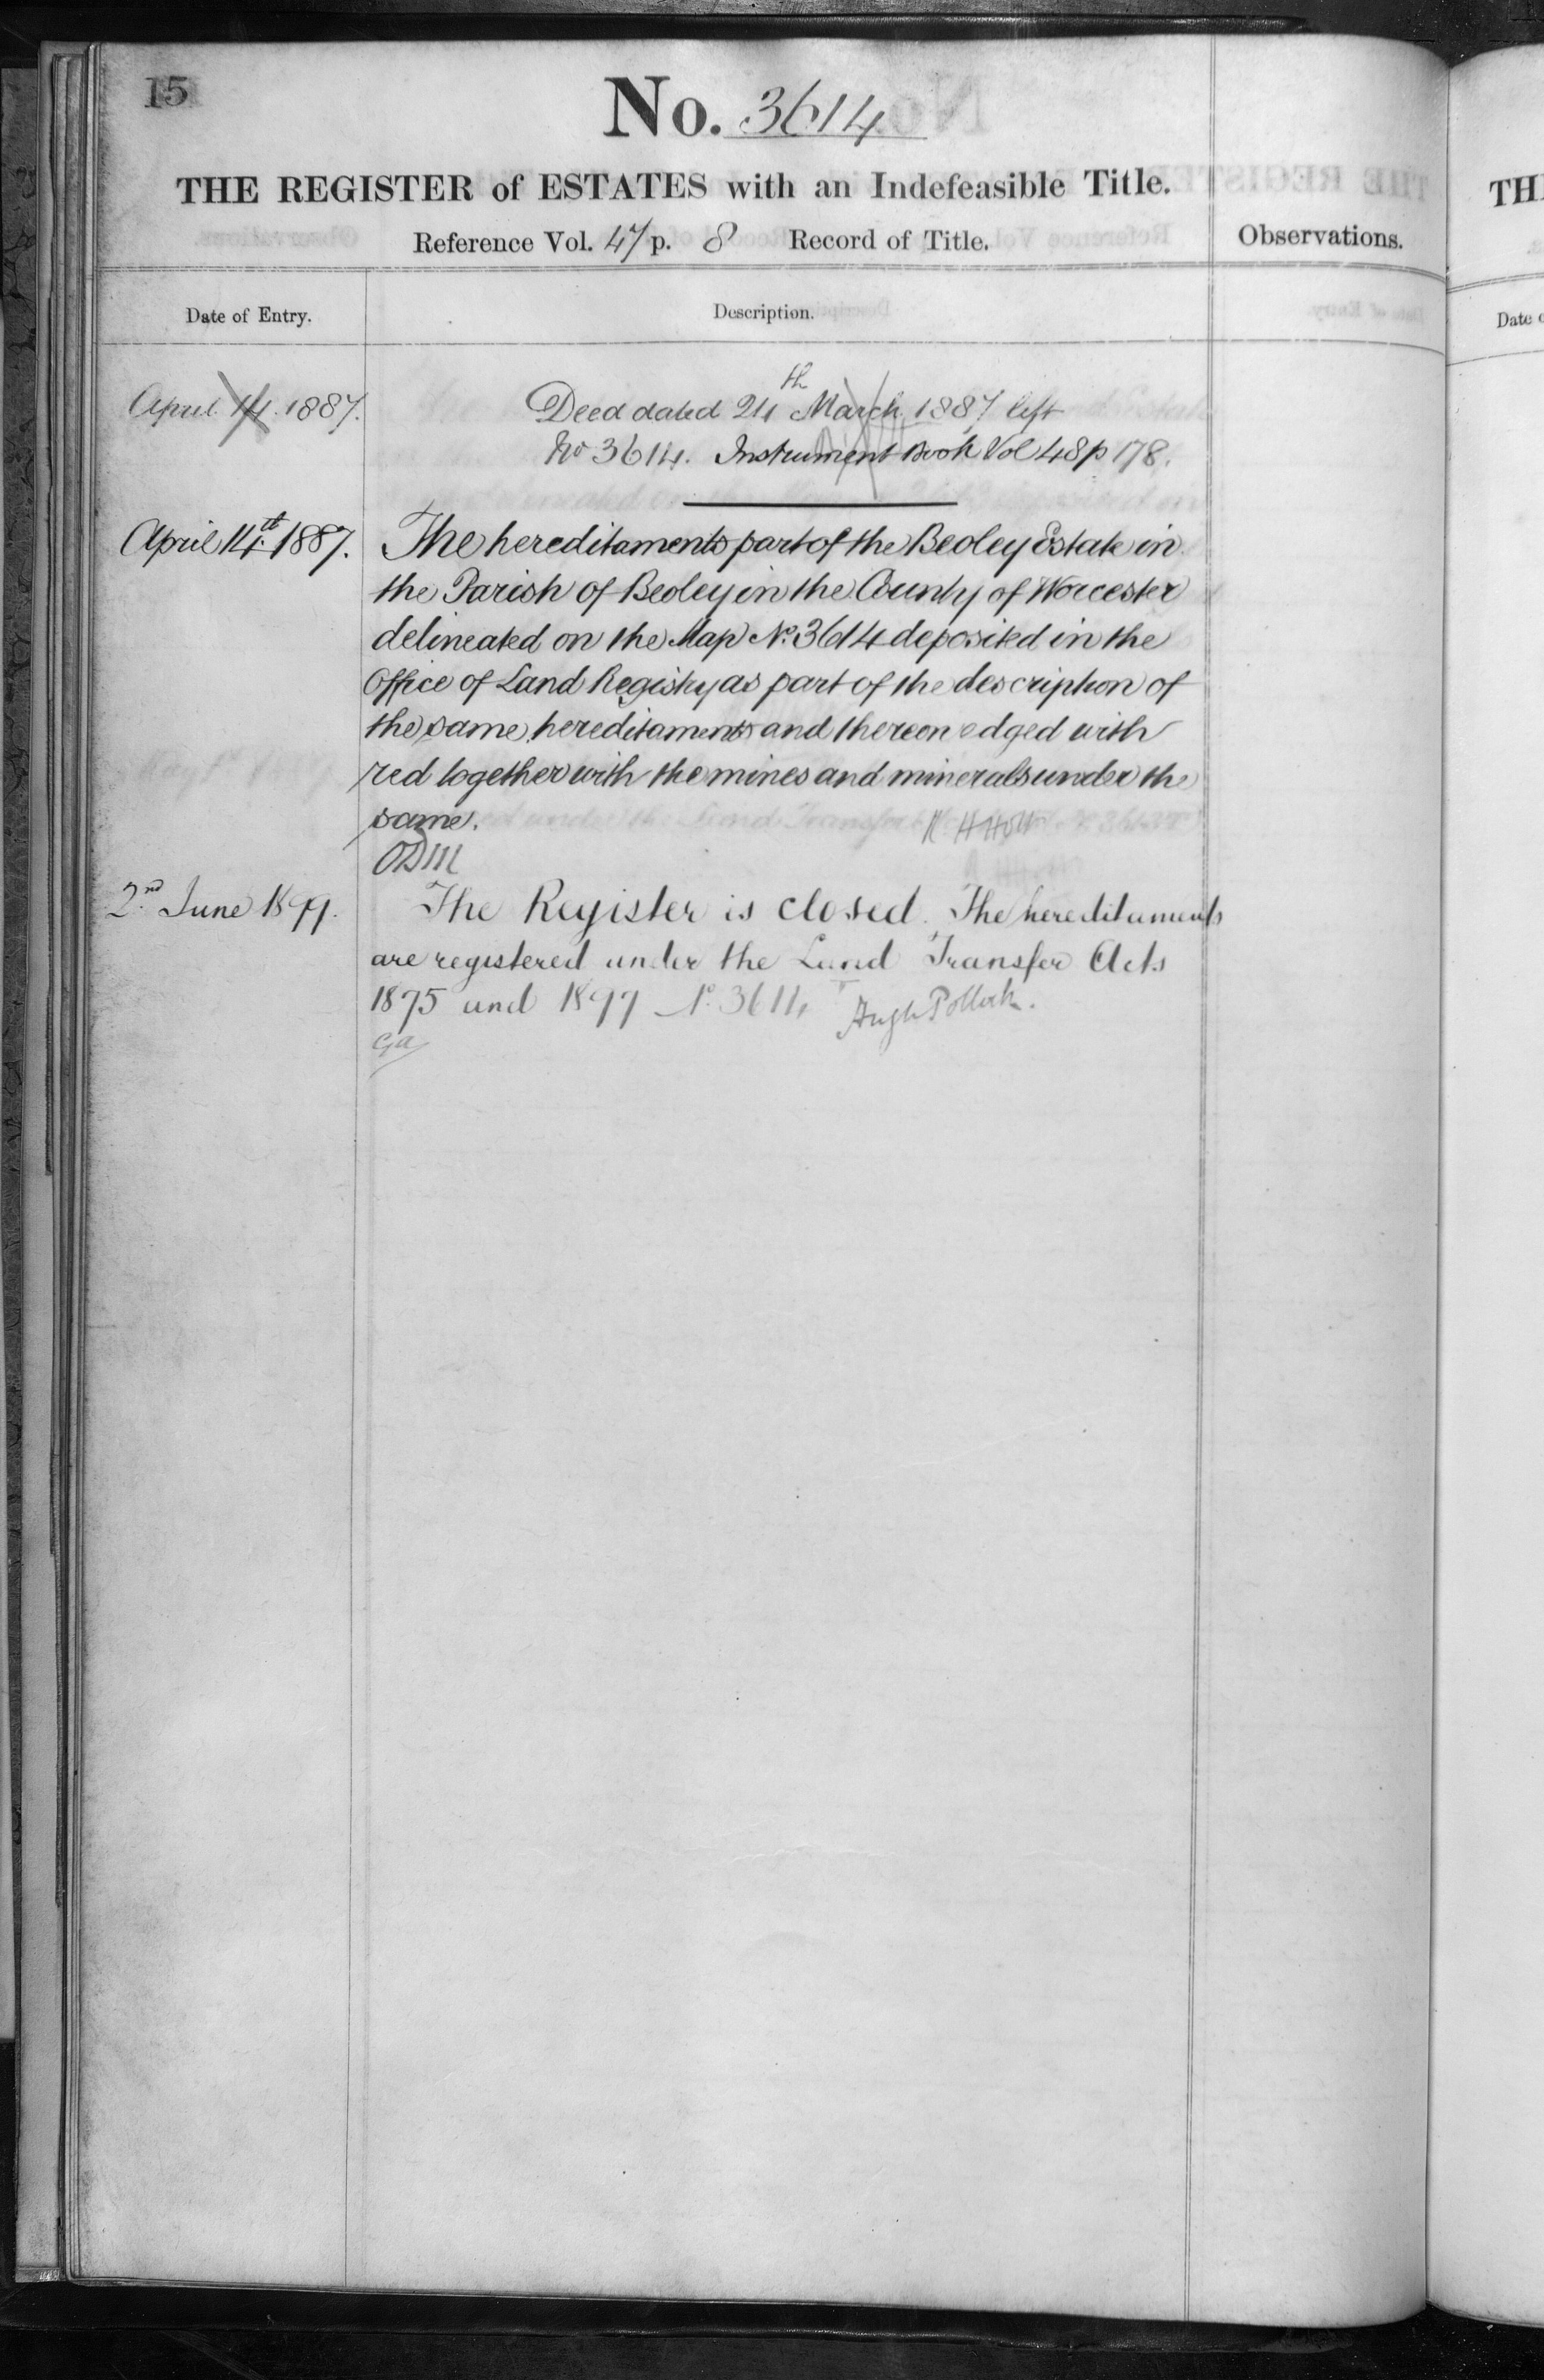 15
No. 3614
THE REGISTER of ESTATES with an Indefeasible Title.
Reference Vol. 47 p. 8 Record of Title.
Observations.
Date of Entry.
Description.
April 14. 1887.
Deed dated 24th March 1887 left
No 3614. Instrument Book Vol 48 p 178.
April 14th 1887.
The hereditaments part of the Beoley Estate in
the Parish of Beoley in the County of Worcester
delineated on the Map No. 3614 deposited in the
Office of Land Registry as part of the description of
the same hereditaments and thereon edged with
red together with the mines and minerals under the
same.
Holt
2nd June 1899.
The Register is closed. The hereditaments
are registered under the Land Transfer Acts
1875 and 1897 No. 3614 Hugh Pollock.
TH
Date o